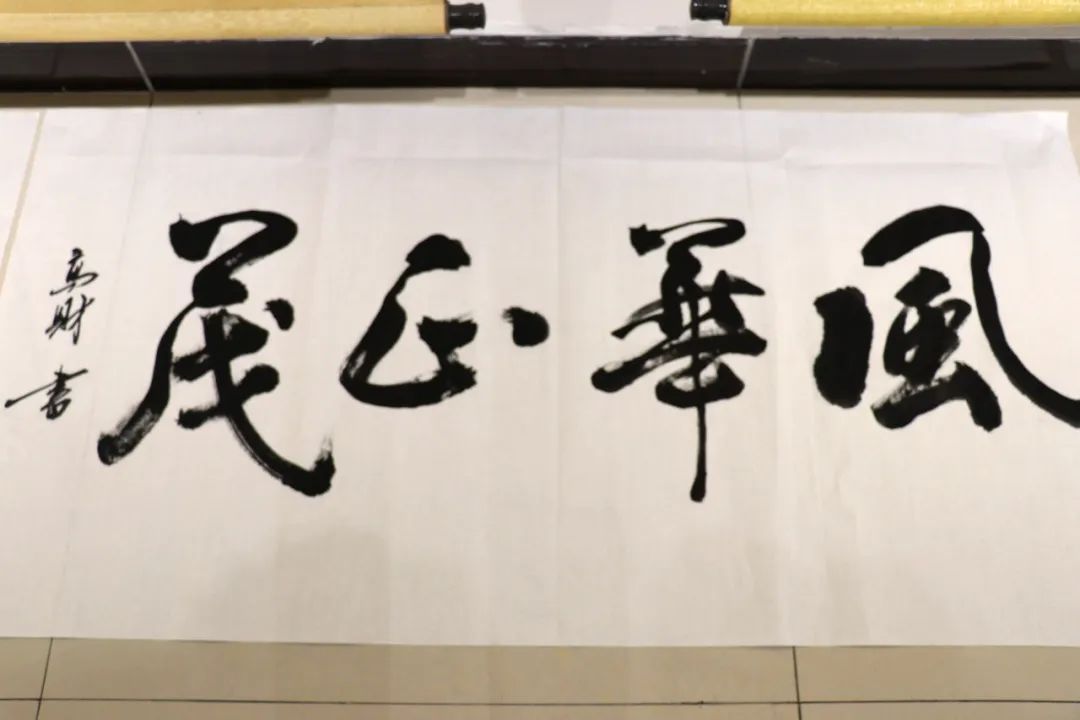 風華正茂
高財書